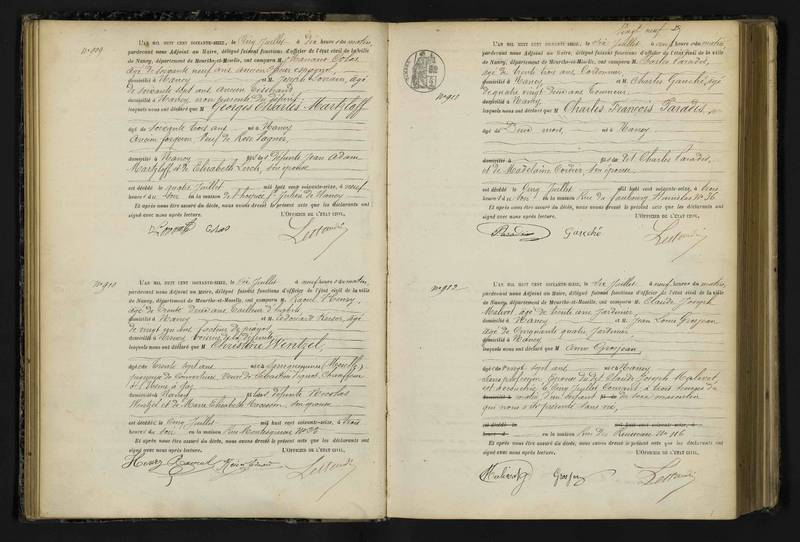 N° 909
L'AN MIL HUIT CENT SOIXANTE-SEIZE, le Cinq Juillet à dix heures du matin,
pardevant nous Adjoint au Maire, délégué faisant fonctions d'officier de l'état civil de la ville
de Nancy, département de Meurthe-et-Moselle, ont comparu M.
âgé de soixante neuf ans ancien
domicilié à Nancy et M. Joseph âgé
de soixante sept ans ancien
domicilié à Nancy, non parents du défunt
lesquels nous ont déclaré que M Georges Charles Martzloff
âgé de soixante trois ans né à Nancy
Ancien Veuf de Rose
domicilié à Nancy fils de défunts Jean Adam
Martzloff et de Elisabeth Lerch, son épouse
est décédé le quatre Juillet mil huit cent soixante-seize, à neuf
heures du soir en la maison de l'hospice St Julien de Nancy
Et après nous être assuré du décès, nous avons dressé le présent acte que les déclarants ont
signé avec nous après lecture. L'OFFICIER DE L'ÉTAT CIVIL,
N° 910
L'AN MIL HUIT CENT SOIXANTE-SEIZE, le Six Juillet à neuf heures du matin,
pardevant nous Adjoint au Maire, délégué faisant fonctions d'officier de l'état civil de la ville
de Nancy, département de Meurthe-et-Moselle, ont comparu M. Raoul Henry,
âgé de trente deux ans tailleur d'habits
domicilié à Nancy et M. Edouard âgé
de vingt ans facteur de pianos
domicilié à Nancy de la défunte
lesquels nous ont déclaré que M Christine Wentzel
âgée de trente sept ans née à Sarreguemines (Moselle)
veuve de Sébastien Chauffeur
à l'usine à gaz
domicilié à Nancy fille de défunts Nicolas
Wentzel et de Marie Elisabeth son épouse
est décédée le Cinq Juillet mil huit cent soixante-seize, à trois
heures du soir en la maison Rue Montesquieu N° 25
Et après nous être assuré du décès, nous avons dressé le présent acte que les déclarants ont
signé avec nous après lecture. L'OFFICIER DE L'ÉTAT CIVIL,
Henry Raoul
Vingt neuf
N° 911
L'AN MIL HUIT CENT SOIXANTE-SEIZE, le Six Juillet à neuf heures du matin,
pardevant nous Adjoint au Maire, délégué faisant fonctions d'officier de l'état civil de la ville
de Nancy, département de Meurthe-et-Moselle, ont comparu M. Charles Paradis,
âgé de vingt trois ans Cordonnier
domicilié à Nancy et M. Charles Gauché, âgé
de quatre vingt deux ans Tonneur
domicilié à Nancy
lesquels nous ont déclaré que M Charles François Paradis
âgé de Deux mois, né à Nancy
domicilié à fils de dt Charles Paradis,
et de Madelaine Cordier, son épouse
est décédé le Cinq Juillet mil huit cent soixante-seize, à trois
heures du soir en la maison Rue du faubourg Stanislas N° 36
Et après nous être assuré du décès, nous avons dressé le présent acte que les déclarants ont
signé avec nous après lecture. L'OFFICIER DE L'ÉTAT CIVIL,
Paradis Gauché
N° 912
L'AN MIL HUIT CENT SOIXANTE-SEIZE, le Six Juillet à neuf heures du matin,
pardevant nous Adjoint au Maire, délégué faisant fonctions d'officier de l'état civil de la ville
de Nancy, département de Meurthe-et-Moselle, ont comparu M. Claude Joseph
âgé de trente ans Jardinier
domicilié à Nancy et M. Jean Louis Grosjean
âgé de Cinquante quatre Jardinier
domicilié à Nancy
lesquels nous ont déclaré que M Anne Grosjean
âgée de vingt sept ans née à Nancy
Sans profession, Epouse du dit Claude Joseph
est accouchée le Cinq Juillet Courant, à trois heures du
matin, d'un Enfant du sexe masculin
qui nous a été présenté sans vie,
est décédé le mil huit cent soixante-seize, à
heures d en la maison Rue du N° 116
Et après nous être assuré du décès, nous avons dressé le présent acte que les déclarants ont
signé avec nous après lecture. L'OFFICIER DE L'ÉTAT CIVIL,
Grosjean